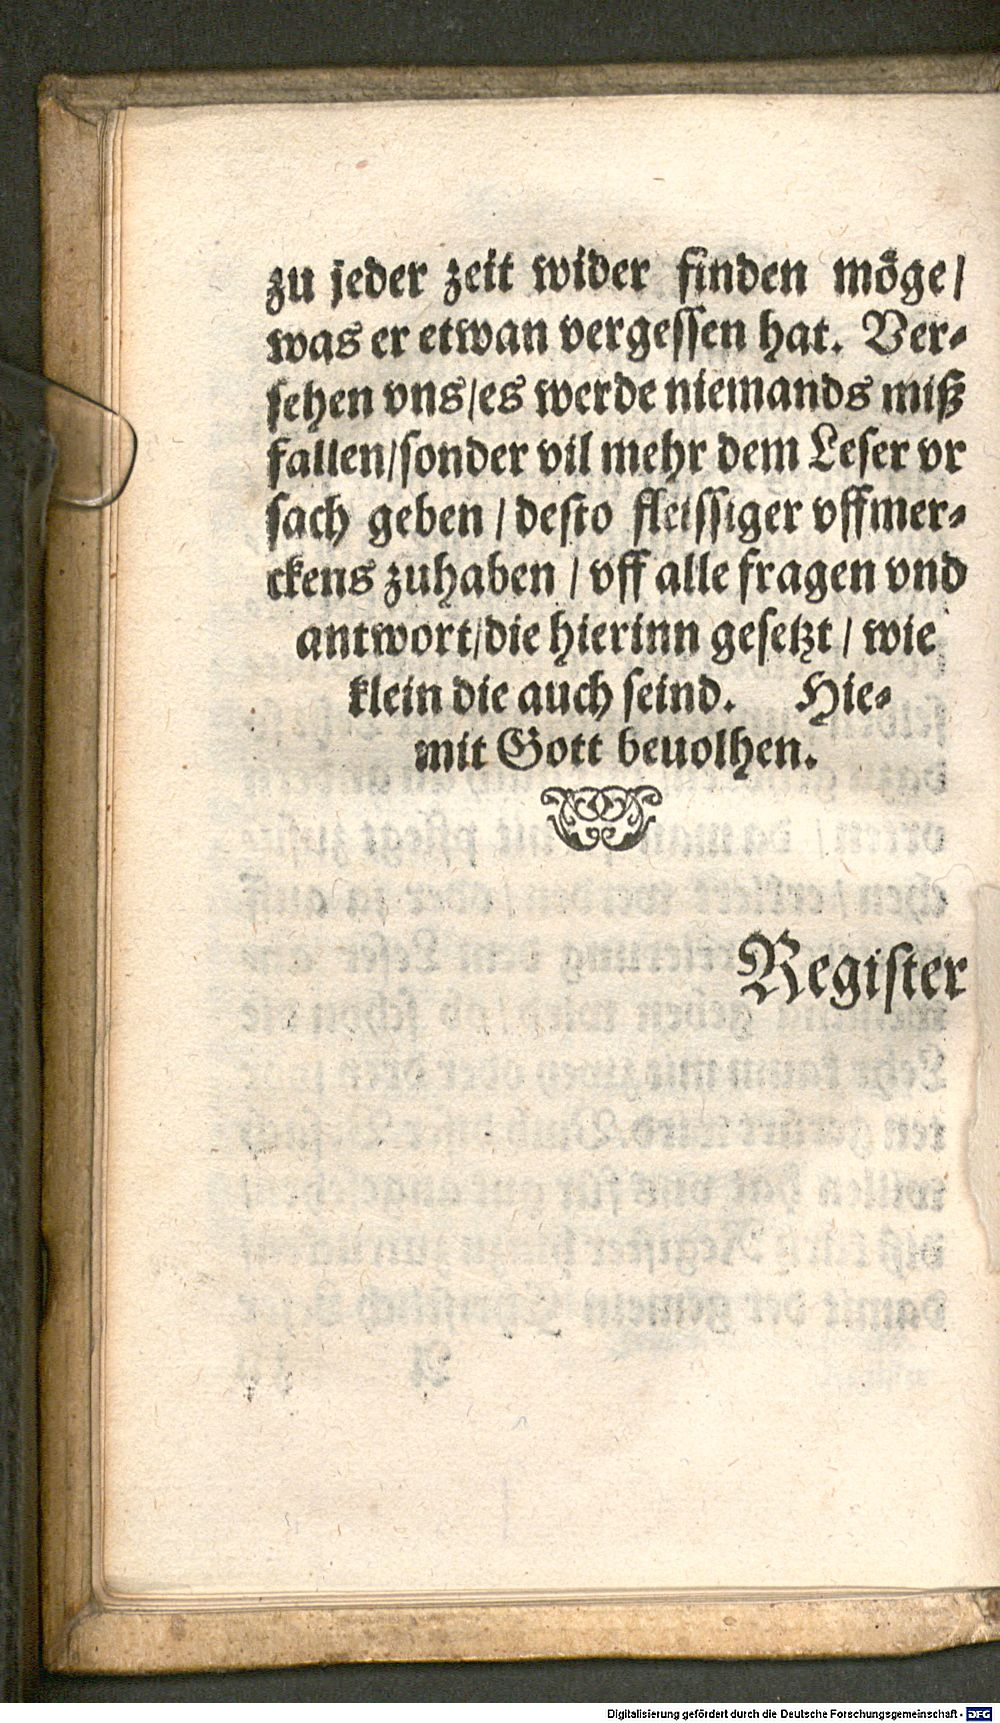 zu jeder zeit wider finden möge/
was er etwan vergessen hat. Ver-
sehen vns/es werde niemands miß
fallen/sonder vil mehr dem Leser vr
sach geben / desto fleissiger vffmer-
ckens zuhaben / vff alle fragen vnd
antwort/die hierinn gesetzt / wie
klein die auch seind. Hie-
mit Gott beuolhen.
Register
Digitalisierung gefördert durch die Deutsche Forschungsgemeinschaft - DFG